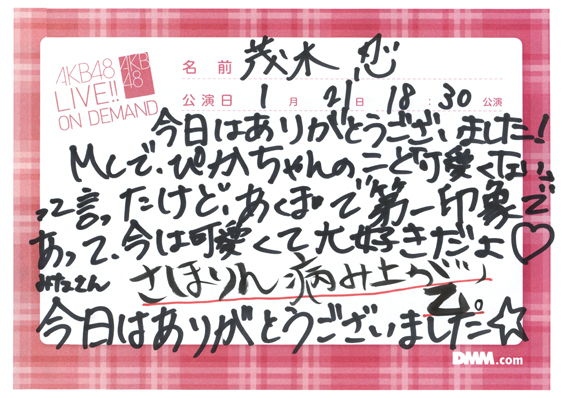 AKB48
LIVE!!
ON DEMAND
AKB
48
名前 茂木 忍
公演日 1月 21日 18:30公演
今日はありがとうございました!
MCで、ぴかちゃんのこと可愛くない
って言ったけど、あくまで第一印象で
あって、今は可愛くて大好きだよ♡
みなさん
さほりん病み上がり
乙。
今日はありがとうございました☆
DMM.com